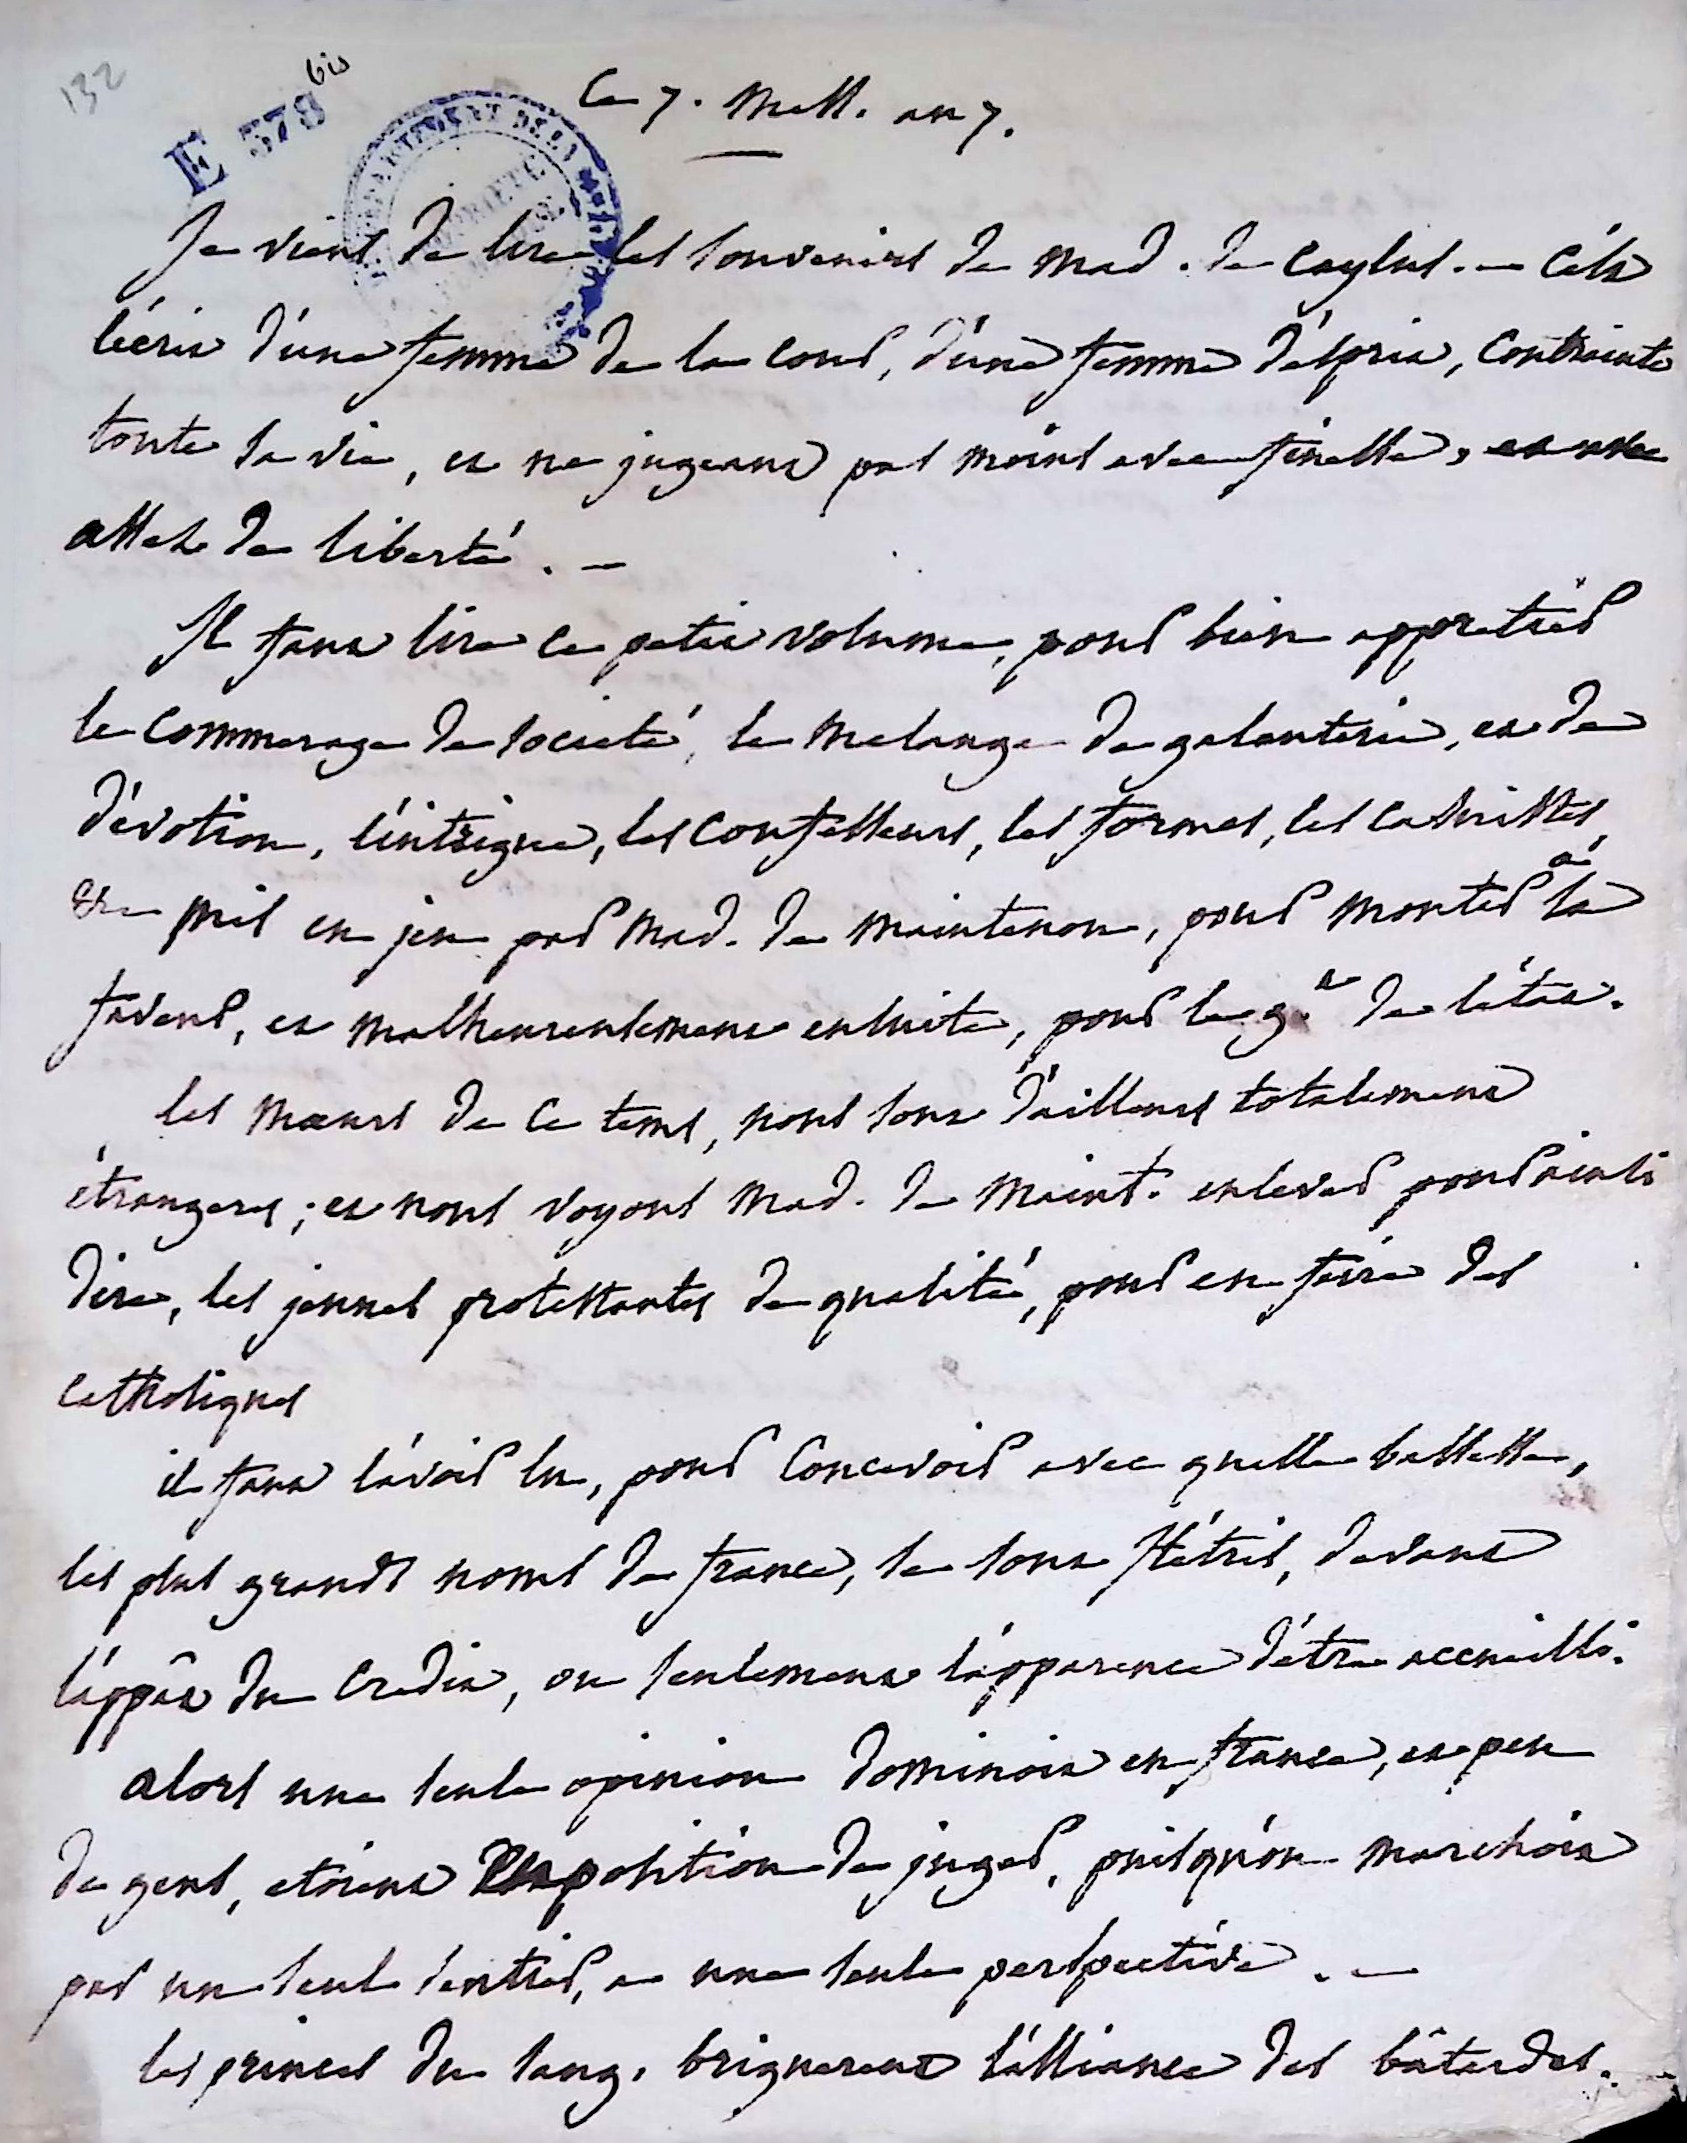 132
E 378 bis
Ce 7. mess. an 7.
Je viens de lire les souvenirs de Mad. de Caylus. — C'est
l'écrit d'une femme de la cour, d'une femme d'esprit, contrainte
toute sa vie, et ne jugeant pas moins avec finesse, et avec
assez de liberté. —
Il faut lire ce petit volume, pour bien apprétier
le commerage de societé, le melange de galanterie, et de
dévotion, l'intrigue, les confesseurs, les formes, les casuistes,
mis en jeu par Mad. de Maintenon, pour monter à la
faveur, et malheureusement ensuite, pour le g.t de l'état.
les mœurs de ce tems, nous sont d'ailleurs totalement
étrangeres ; et nous voyons Mad. de Maint. enlever pour ainsi
dire, les jeunes protestantes de qualité, pour en faire des
catholiques
il faut l'avoir lu, pour concevoir avec quelle bassesse,
les plus grands noms de france, se sont flétris, devant
l'appât du credit, ou seulement l'apparence d'être accueilli.
alors une seule opinion dominoit en france, et peu
de gens, etoient position de juger, puisqu'on marchoit
par un seul sentier, a une seule perspective. —
les princes du sang, briguerent l'alliance des bâtardes.